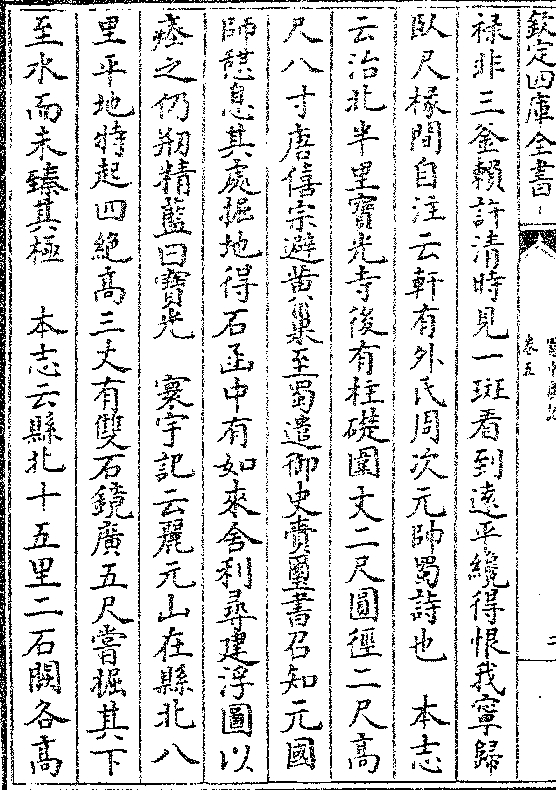 欽定四庫全書
卷五
祿非三釡賴許清時見一斑看到遠平纔得恨我寧歸
臥尺椽間自注云軒有外氏周次元帥蜀詩也　本志
云治北半里寶光寺後有柱礎圍丈二尺圓徑二尺高
尺八寸唐僖宗避黄巢至蜀遣御史賫璽書召知元國
師憇息其處掘地得石函中有如來舍利尋建浮圖以
瘞之仍剏精藍曰寶光　寰宇記云麗元山在縣北八
里平地特起四絶高三丈有雙石鏡廣五尺嘗掘其下
至水而未臻其極　本志云縣北十五里二石闕各高